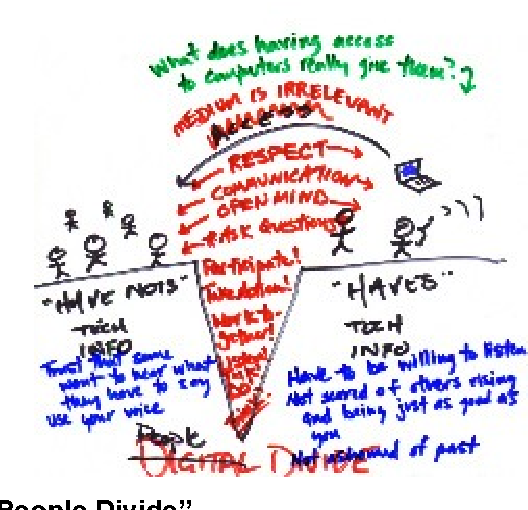 What does having access
to computers really give them?
MEDIUM IS IRRELEVANT
Access
RESPECT
COMMUNICATION
OPEN MIND
ASK Questions
Participate!
Take Action!
Work to-
gether!
"HAVE NOTS"
TECH
INFO
"HAVES"
TECH
INFO
Trust that some
want to hear what
they have to say
use your voice
Have to be willing to listen
Not scared of others rising
and being just as good as
you
Not ashamed of past
People
DIGITAL DIVIDE
People Divide"